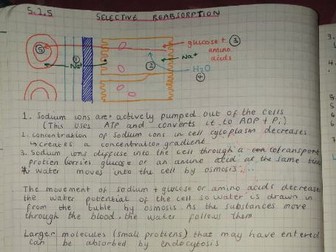 5.2.5 SELECTIVE REABSORPTION
glucose + amino acids
Na+
Na+
H2O
1. Sodium ions are actively pumped out of the cells
(This uses ATP and converts it to ADP + Pi)
2. concentration of sodium ions in cell cytoplasm decreases
→ creates a concentration gradient
3. Sodium ions diffuse into the cell through a cotransport
protein carries glucose or an amino acid at the same time
4. water moves into the cell by osmosis
The movement of sodium + glucose or amino acids decreases
the water potential of the cell so water is drawn in
from the tubule by osmosis. As the substances move
through the blood, the water follows them
Larger molecules (small proteins) that may have entered
can be absorbed by endocytosis